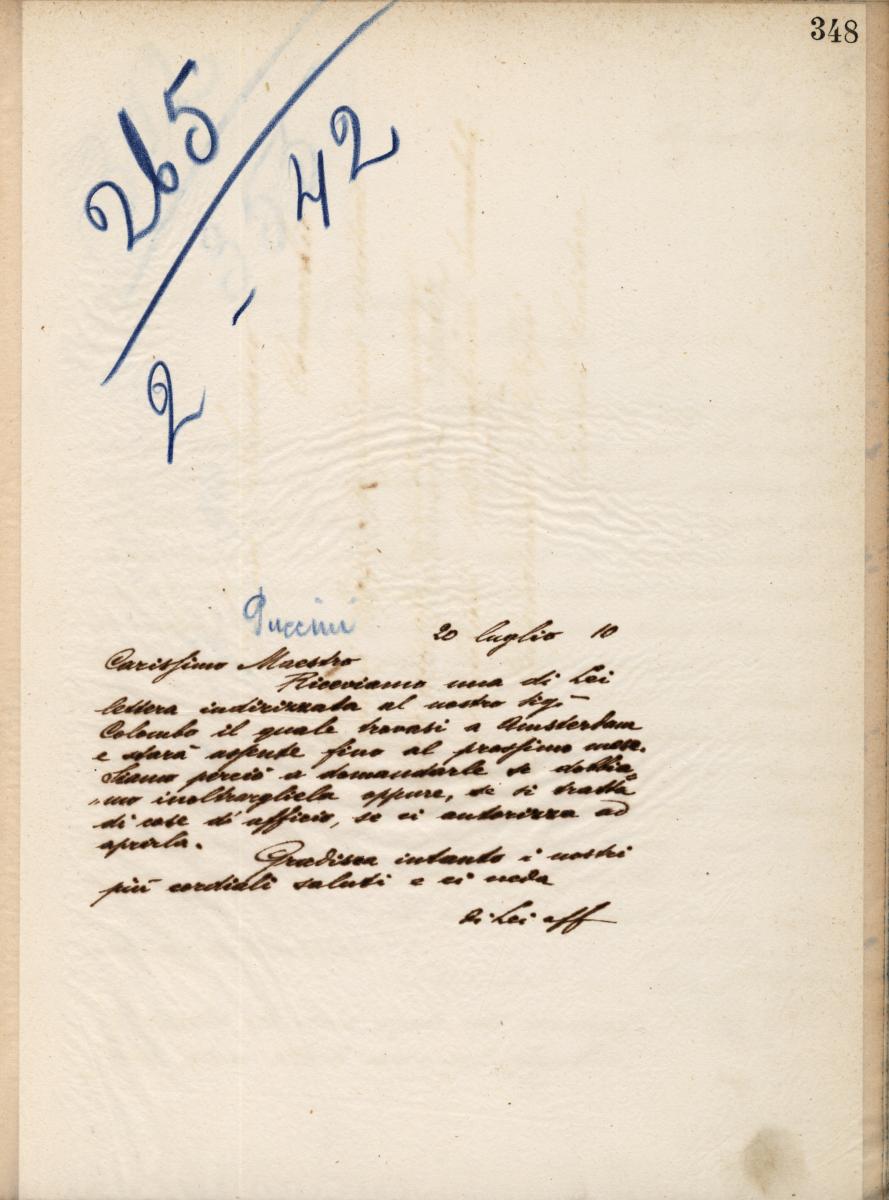 348
265
42
2 -
Puccini
20 luglio 10
Carissimo Maestro
Riceviamo una di Lei
lettera indirizzata al nostro Sigr
Colombo il quale trovasi a Amsterdam
e starà assente fino al prossimo mese.
Siamo perciò a domandarle se dobbia=
=mo inoltrargliela oppure, se si tratta
di cose d'ufficio, se ci autorizza ad
aprirla.
Gradisca intanto i nostri
più cordiali saluti e ci creda
di Lei aff